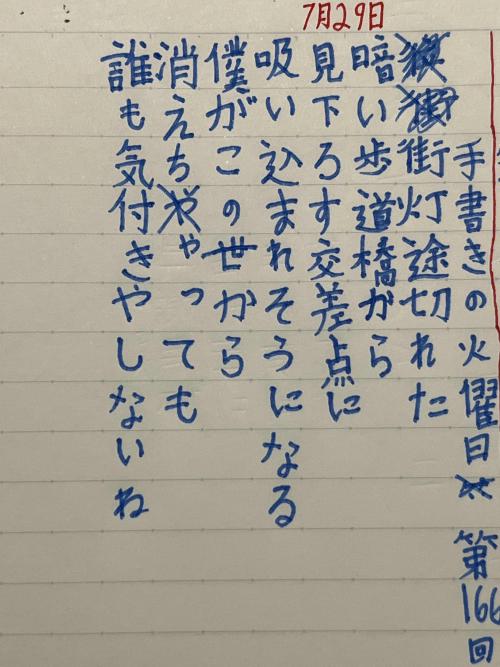 7月29日
手書きの火曜日 第166回
街灯途切れた
暗い歩道橋から
見下ろす交差点に
吸い込まれそうになる
僕がこの世から
消えちゃっても
誰も気付きやしないね